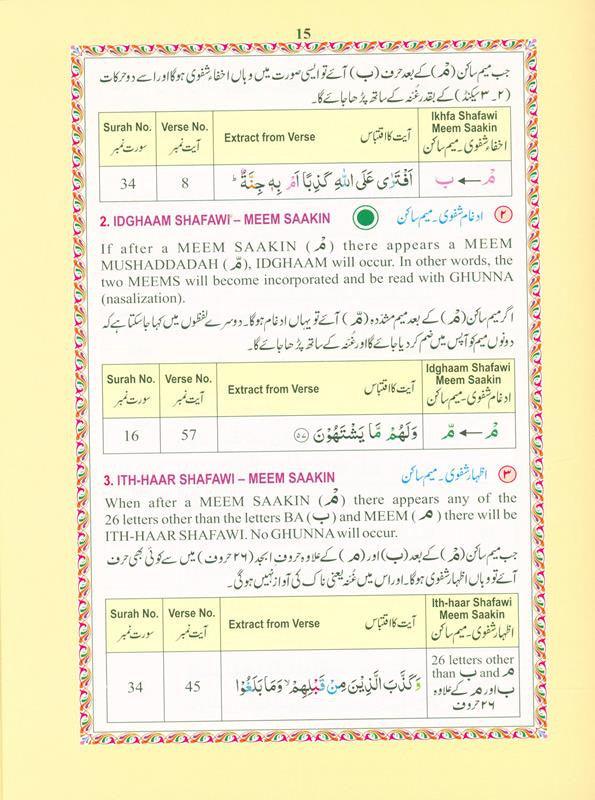 15
جب میم ساکن (مْ) کے بعد حرف (ب) آئے تو ایسی صورت میں وہاں اخفاء شفوی ہوگا اور اسے دو حرکات
(۲۔۳ سیکنڈ) کے بقدر غُنہ کے ساتھ پڑھا جائے گا۔
Surah No. سورت نمبر
Verse No. آیت نمبر
Extract from Verse آیت کا اقتباس
Ikhfa Shafawi
Meem Saakin
اخفاء شفوی۔ میم ساکن
34
8
اَفْتَرٰى عَلَى اللّٰهِ كَذِبًا اَمْ بِهٖ جِنَّةٌ ؕ
مْ ← ب
2. IDGHAAM SHAFAWI – MEEM SAAKIN
ادغام شفوی۔ میم ساکن ۲
If after a MEEM SAAKIN (مْ) there appears a MEEM
MUSHADDADAH (مّ), IDGHAAM will occur. In other words, the
two MEEMS will become incorporated and be read with GHUNNA
(nasalization).
اگر میم ساکن (مْ) کے بعد میم مشدّدہ (مّ) آئے تو یہاں ادغام ہوگا۔ دوسرے لفظوں میں کہا جاسکتا ہے کہ
دونوں میم کو آپس میں ضم کر دیا جائے گا اور غُنہ کے ساتھ پڑھا جائے گا۔
Surah No. سورت نمبر
Verse No. آیت نمبر
Extract from Verse آیت کا اقتباس
Idghaam Shafawi
Meem Saakin
ادغام شفوی۔ میم ساکن
16
57
وَلَهُمْ مَّا يَشْتَهُوْنَ ﴿۵۷﴾
مْ ← مّ
3. ITH-HAAR SHAFAWI – MEEM SAAKIN
اظہار شفوی۔ میم ساکن ۳
When after a MEEM SAAKIN (مْ) there appears any of the
26 letters other than the letters BA (ب) and MEEM (م) there will be
ITH-HAAR SHAFAWI. No GHUNNA will occur.
جب میم ساکن (مْ) کے بعد (ب) اور (م) کے علاوہ حروف ابجد (۲۶ حروف) میں سے کوئی بھی حرف
آئے تو وہاں اظہار شفوی ہوگا۔ اور اس میں غُنہ یعنی ناک کی آواز نہیں ہوگی۔
Surah No. سورت نمبر
Verse No. آیت نمبر
Extract from Verse آیت کا اقتباس
Ith-haar Shafawi
Meem Saakin
اظہار شفوی۔ میم ساکن
34
45
وَكَذَّبَ الَّذِيْنَ مِنْ قَبْلِهِمْ ۙ وَمَا بَلَغُوْا
26 letters other
than ب and م
ب اور م کے علاوہ
۲۶ حروف